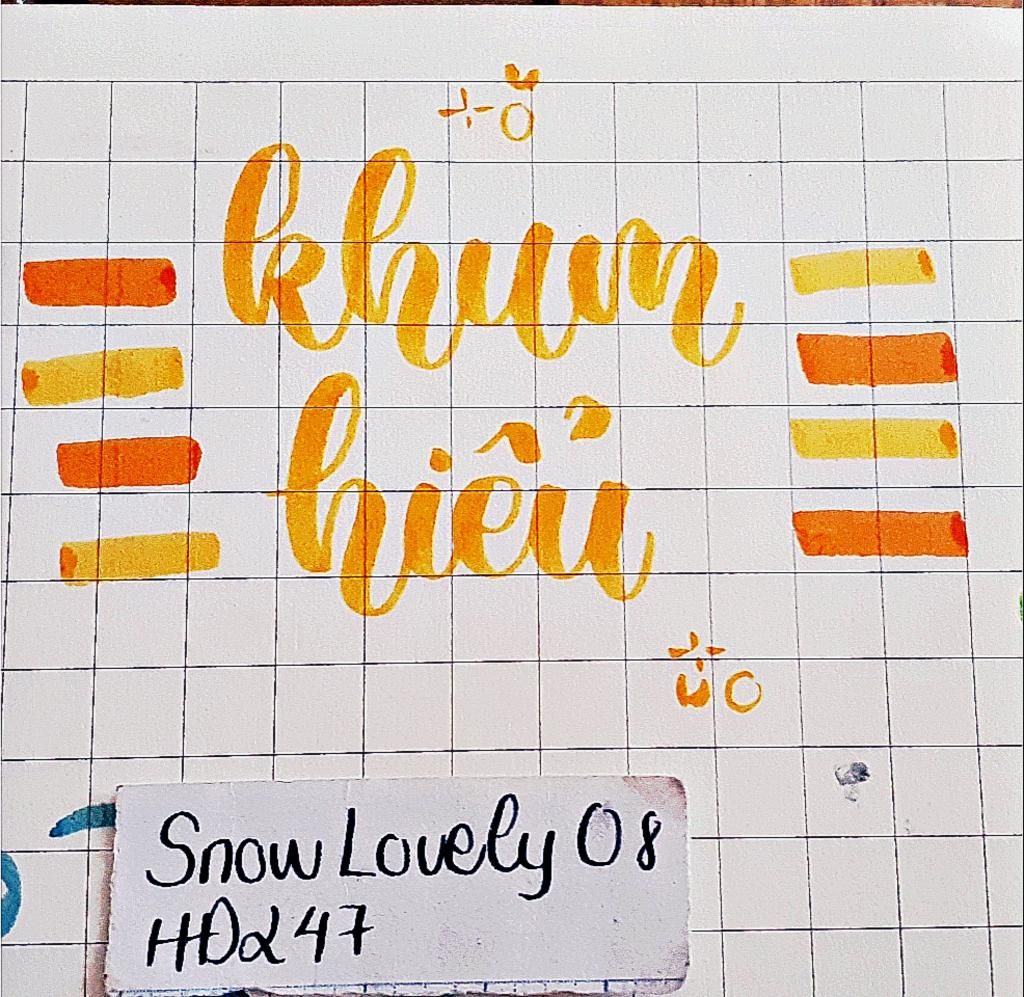 khum
hiểu
Snow Lovely 08
HD247